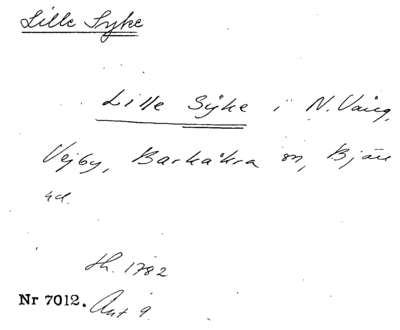 Lille Syke
Lille Sÿke i N. Vång,
Vejby, Barkåkra sn, Bjäre
hd.
Sh. 1782
Nr 7012. Akt 9.